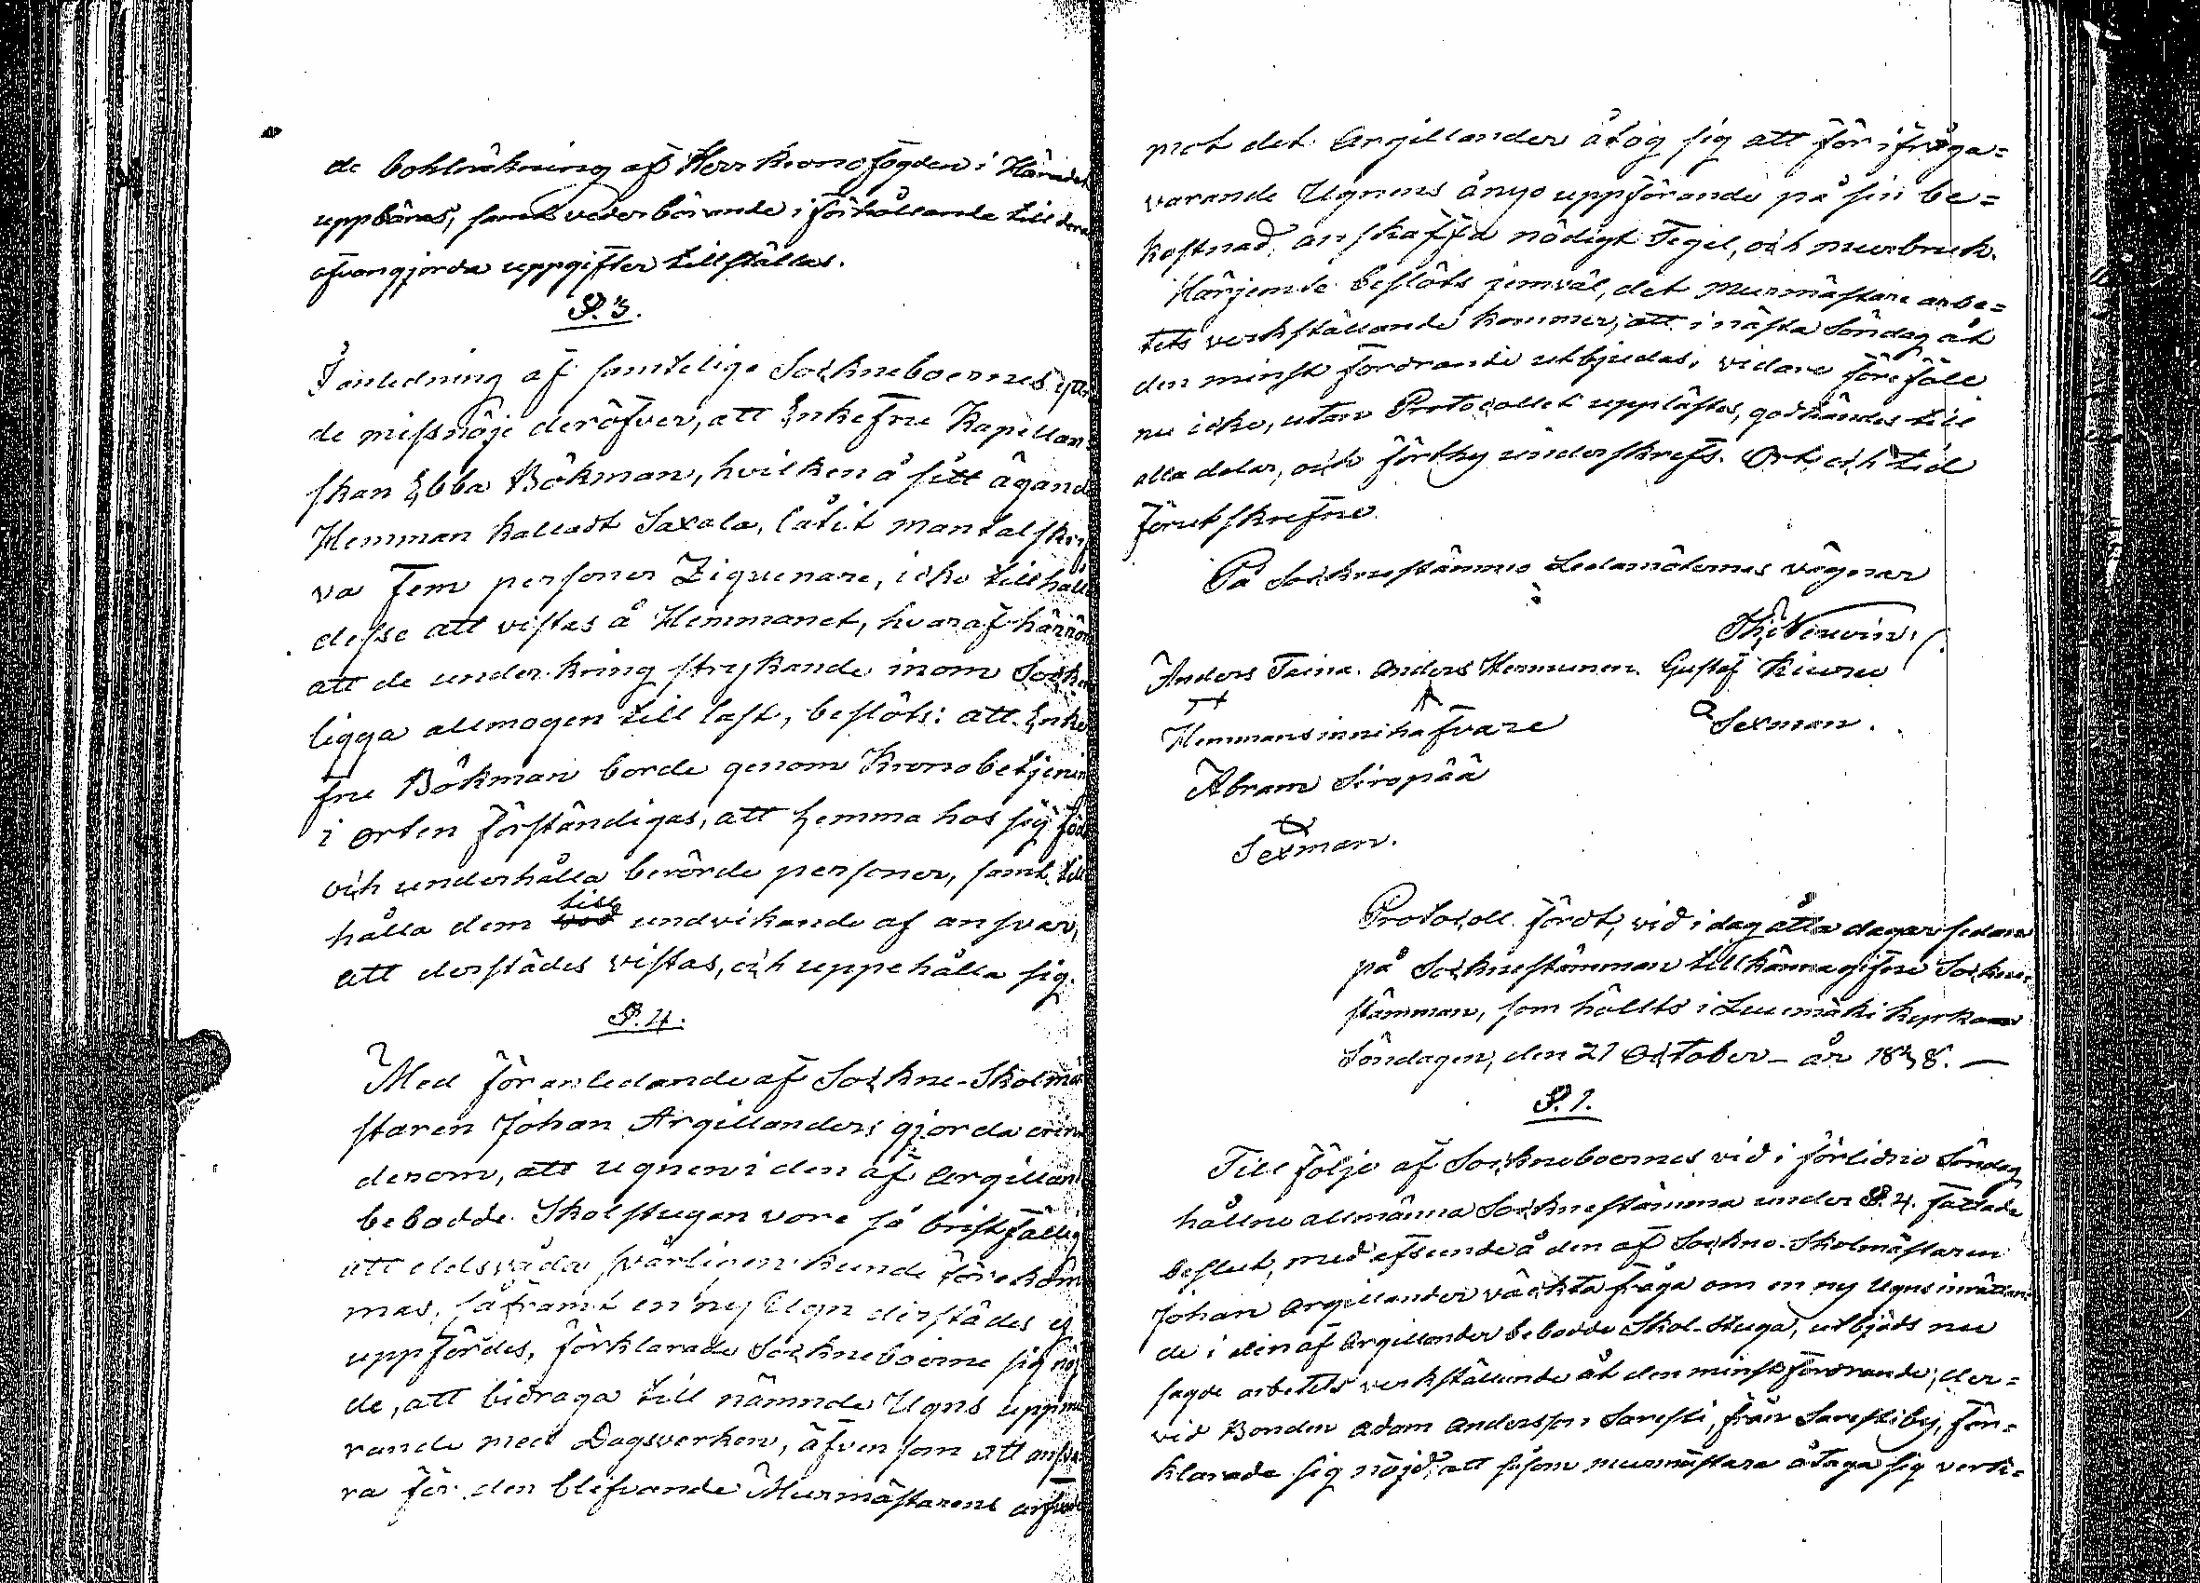 de bohlräkning af Herr Kronofogden i Häradet
uppbäras, samt vederbörande i förhållande till deras
ofvangjorda uppgifter tillställas.
P. 3.
I anledning af samtelige Sockneboernes
de missnöje deröfver, att Enkefru Kapellan-
skan Ebba Bökman, hvilken å sitt ägande
Hemman kalladt Saxala, låtit mantalskrif
va fem personer Ziguenare, icke tillhålle
desse att vistas å Hemmanet, hvaraf härrör
att de under kring strykande inom Sockn
ligga allmogen till last, beslöts: att Enke
fru Bökman borde genom Kronobetjenin
i orten förständigas, att hemma hos sig föda
och underhålla berörde personer, samt till
hålla dem till undvikande af answar,
att derstädes vistas, och uppehålla sig.
P. 4.
Med föranledande af Sockne-Skolmä
staren Johan Argillanders gjorda erin
den om, att ugnen i den af Argilland
bebodde Skolstugan vore så bristfällig
att eldsvåda svårligen kunde förekom
mas, såframt en ny Ugn derstädes ej
uppfördes, förklarade Sockneboerne sig nöj
de, att bidraga till nämnde Ugns uppmu
rande med Dagsverken, äfvensom att ansva
ra för den blifvande Murmästarens arfvode
mot det Argillander åtog sig att för ifråga=
varande Ugnens ånyo uppförande på sin be=
kostnad, anskaffa nödigt Tegel, och murbruk.
Härjemte beslöts jemväl, det murmästare arbe=
tets verkställande kommer, att i nästa Söndag åt
den minst fordrande utbjudas; vidare föreföll
nu icke, utan Protocollet upplästes, godkändes till
alla delar, och förthy underskrefs. Ort och tid
förutskrefne.
På Sockenstämmo Ledamöternes vägnar
Anders Taina. Anders Hemmunen. Gustaf Kiuru
Hemmansinnehafvare Sexman.
Abram Siropää
Sexman.
Protocoll fördt, vid i dag åtta dagar sedan
på Socknestämman tillkännagifne Sockne-
stämman, som hållts i Luumäki kyrka
Söndagen, den 21 October - år 1838. —
P. 1.
Till följe af Sockneboernes vid i förlidne Söndag
hållne allmänna Socknestämma under P. 4. fattade
beslut, med afseende å den af Sockne-Skolmästaren
Johan Argillander väckta fråga om en ny Ugns inrättan
de i den af Argillander bebodde Skol-Stuga, utbjöds nu
sagde arbetets verkställande åt den minst fordrande; der=
vid Bonden Adam Andersson Saresti, från Saresti by, för=
klarade sig nöjd, att såsom murmästare åtaga sig verk=